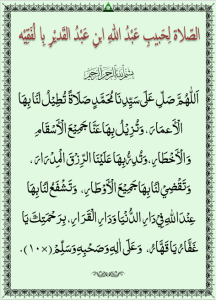 الصَّلَاةُ لِحَبِيبِ عَبْدُ اللهِ ابنِ عَبْدُ القَدِيْرِ بِا لْفَقِيْه
بِسْمِ اللهِ الرَّحْمٰنِ الرَّحِيْمِ
اَللّٰهُمَّ صَلِّ عَلَى سَيِّدِنَا مُحَمَّدٍ صَلَاةً تُطِيْلُ لَنَا بِهَا
الْأَعْمَارَ، وَتُزِيْلُ بِهَا عَنَّا جَمِيْعَ الْأَسْقَامِ
وَالْأَخْطَارِ، وَتُدِرُّ بِهَا عَلَيْنَا الرِّزْقَ الْمِدْرَارَ،
وَتَقْضِيْ لَنَا بِهَا جَمِيْعَ الْأَوْطَارِ، وَتَشْفَعُ لَنَا بِهَا
عِنْدَ اللهِ فِيْ دَارِ الدُّنْيَا وَدَارِ الْقَرَارِ، بِرَحْمَتِكَ يَا
غَفَّارُ يَا قَهَّارُ، وَعَلَى آلِهِ وَصَحْبِهِ وَسَلِّمْ (×١٠).